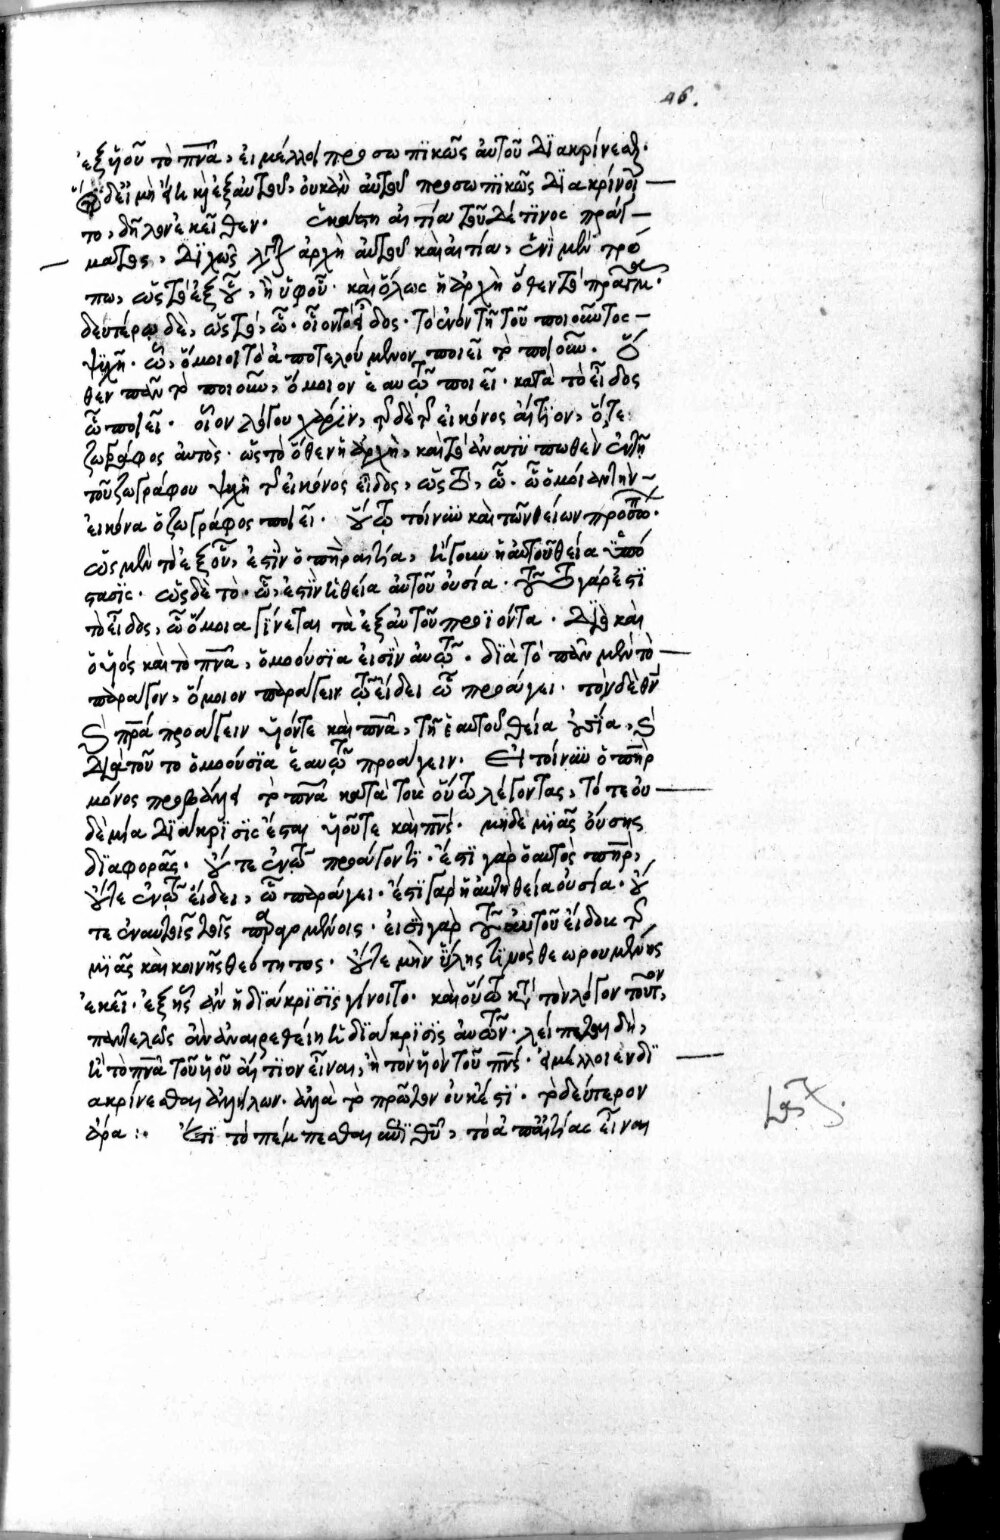 46.
ἐξ υἱοῦ τὸ πνα, εἰ μέλλοι προσωπικῶς αὐτοῦ διακρίνεσθαι.
δεῖ μὴ εἶναι καὶ ἐξ αὐτοῦ, οὐκ ἂν αὐτοῦ προσωπικῶς διακρίνοι
το, δῆλον ἐκεῖθεν. ἑκάστη αἰτία τοῦ δέ τινος πράγ
ματος, διχῶς λέγεται ἀρχὴ αὐτοῦ καὶ αἰτία, ἑνὶ μὲν τρό
πω, ὡς τὸ ἐξ οὗ, ἢ ὑφ' οὗ. καὶ ὅλως ἡ ἀρχὴ ὅθεν τὸ πρᾶγμα.
δευτέρω δὲ, ὡς τὸ, ὧ. οἷον τὸ εἶδος. τὸ ἐν τῆ τοῦ ποιοῦντος
ψυχῆ. ὧ, ὅμοιον τὸ ἀποτελούμενον ποιεῖ τὸ ποιοῦν. ὅ
θεν πᾶν τὸ ποιοῦν, ὅμοιον ἑαυτῶ ποιεῖ. κατὰ τὸ εἶδος
ὧ ποιεῖ. οἷον λόγου χάριν, τῆς δὲ τῆς εἰκόνος αἴτιον, ὅτε
ζωγράφος αὐτὸς. ὡς τὸ ὅθεν ἡ ἀρχὴ, καὶ τὸ ἀνατυπωθὲν ἐν τῆ
τοῦ ζωγράφου ψυχῆ τῆς εἰκόνος εἶδος, ὡς τὸ, ὧ. ὧ ὅμοιον τὴν
εἰκόνα ὁ ζωγράφος ποιεῖ. οὕτω τοίνυν καὶ τῶν θείων προσώπων.
ὡς μὲν τὸ ἐξ οὗ, ἐστὶν ὁ πηρ αἰτία, ἤγουν ἡ αὐτοῦ θεία ὑπό
στασις. ὡς δὲ τὸ. ὧ, ἐστὶν ἡ θεία αὐτοῦ οὐσία. τοῦτο γάρ ἐστι
τὸ εἶδος, ὧ ὅμοια γίνεται τὰ ἐξ αὐτοῦ προϊόντα. διὸ καὶ
ὁ υἱός καὶ τὸ πνα, ὁμοούσια εἰσὶν αὐτῶ. διὰ τὸ πᾶν μὲν τὸ
παράγον, ὅμοιον παράγειν τῶ εἴδει ὧ προάγει. τὸν δὲ θν
καὶ πρα προάγειν υἱόν τε καὶ πνα, τῆ ἑαυτοῦ θεία οὐσία, καὶ
διὰ τοῦτο ὁμοούσια ἑαυτῶ προάγειν. Εἰ τοίνυν ὁ πηρ
μόνος προβάλλει τὸ πνα κατὰ τοὺς οὕτω λέγοντας, τότε οὐ
δεμία διάκρισις ἔσται υἱοῦ τε καὶ πνς. μηδεμιᾶς οὔσης
διαφορᾶς. οὔτε ἐν τῶ προάγοντι. ἔστι γὰρ ὁ αὐτὸς πηρ,
οὔτε ἐν τῶ εἴδει, ὧ παράγει. ἔστι γὰρ ἡ αὐτὴ θεία οὐσία. οὔ
τε ἐν αὐτοῖς τοῖς παραγομένοις. εἰσὶ γὰρ τοῦ αὐτοῦ εἴδους τῆς
μιᾶς καὶ κοινῆς θεότητος. οὔτε μὴν ὕλης τινὸς θεωρουμένης
ἐκεῖ. ἐξ ἧς ἂν ἡ διάκρισις γένοιτο. καὶ οὕτω κατὰ τὸν λόγον τοῦτον,
παντελῶς ἂν ἀναιρεθείη ἡ διάκρισις αὐτῶν. λείπεται δὴ,
ἢ τὸ πνα τοῦ υἱοῦ αἴτιον εἶναι, ἢ τὸν υἱὸν τοῦ πνς. εἰ μέλλοιεν δι
ακρίνεσθαι ἀλλήλων. ἀλλὰ τὸ πρῶτον οὐκ ἔστι. τὸ δεύτερον
ἄρα :. Ἔτι τὸ πέμπεσθαι ἀντὶ θῦ, τὸ ἀπ' αἰτίας εἶναι